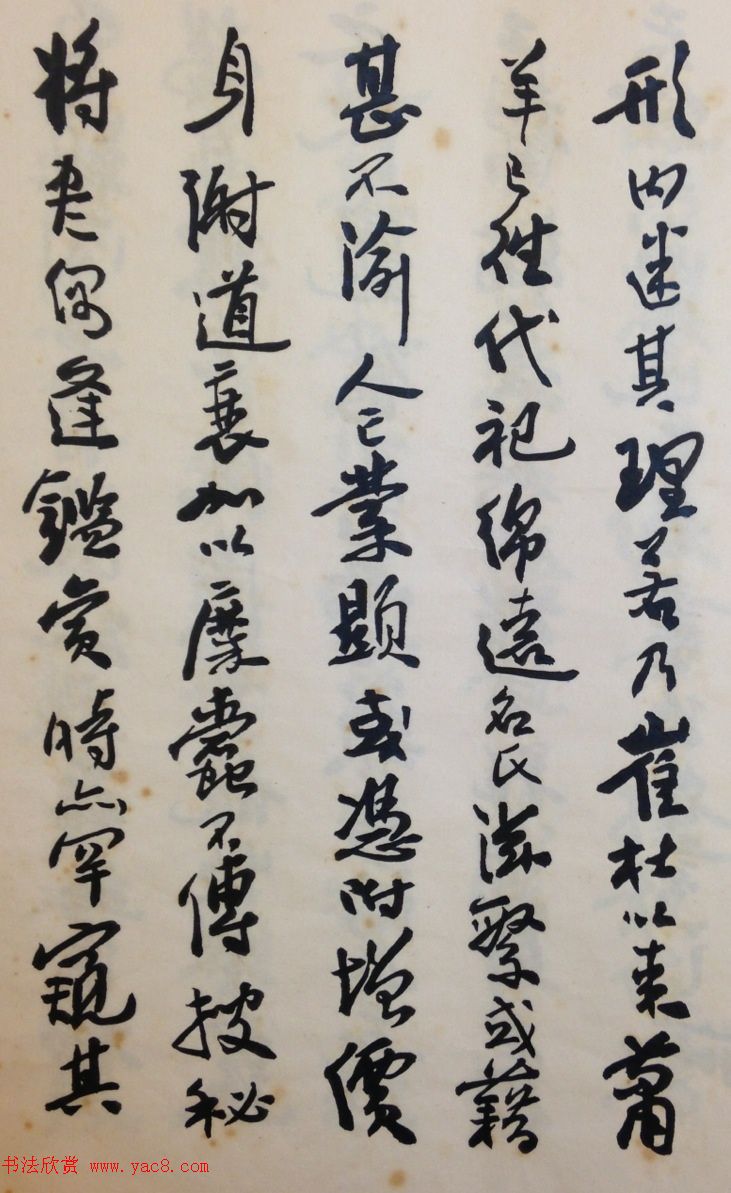 形内迷其理若乃崔杜以来萧
羊已往代祀绵远名氏滋繁或藉
甚不渝人亡业显或凭附增价
身谢道衰加以糜蠹不传搜秘
将尽偶逢鉴赏时亦罕窥其
书法欣赏 www.yac8.com